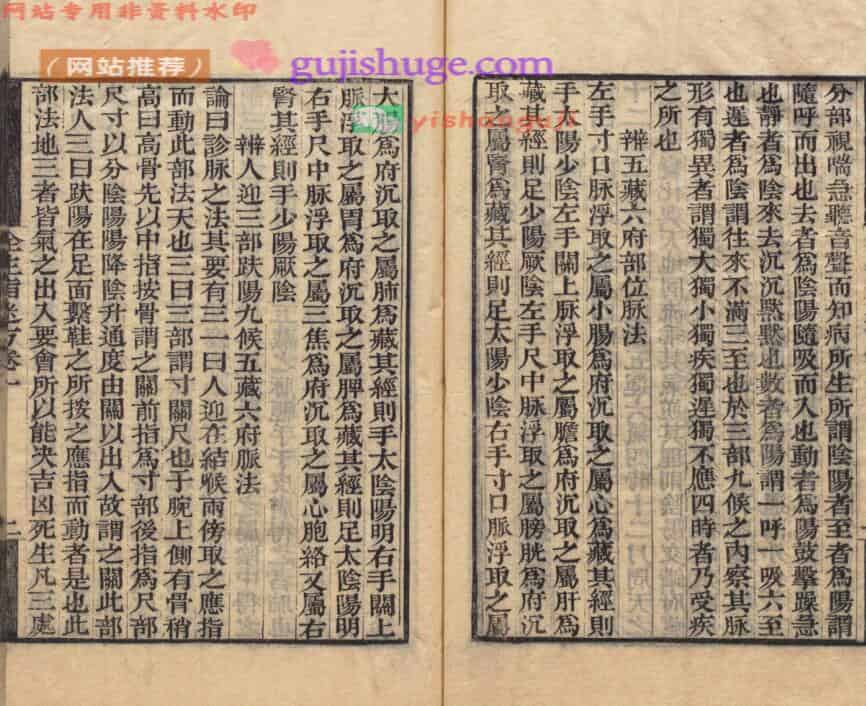 网站专用非资料水印
（网站推荐）
gujishuge.com
yishanguji
分部視喘急聽音聲而知病所生所謂陰陽者至者爲陽謂
隨呼而出也去者爲陰陽隨吸而入也動者爲陽鼓擊躁急
也靜者爲陰來去沉沉默默也數者爲陽謂一呼一吸六至
也遲者爲陰謂往來不滿三至也於三部九候之內察其脉
形有獨異者謂獨大獨小獨疾獨遲獨不應四時者乃受疾
之所也
辨五藏六府部位脉法
左手寸口脉浮取之屬小腸爲府沉取之屬心爲藏其經則
手太陽少陰左手關上脉浮取之屬膽爲府沉取之屬肝爲
藏其經則足少陽厥陰左手尺中脉浮取之屬膀胱爲府沉
取之屬腎爲藏其經則足太陽少陰右手寸口脉浮取之屬
大腸爲府沉取之屬肺爲藏其經則手太陰陽明右手關上
脉浮取之屬胃爲府沉取之屬脾爲藏其經則足太陰陽明
右手尺中脉浮取之屬三焦爲府沉取之屬心胞絡又屬右
腎其經則手少陽厥陰
辨人迎三部趺陽九候五藏六府脉法
論曰診脉之法其要有三一曰人迎在結喉兩傍取之應指
而動此部法天也二曰三部謂寸關尺也于腕上側有骨稍
高曰高骨先以中指按骨謂之關前指爲寸部後指爲尺部
尺寸以分陰陽陽降陰升通度由關以出入故謂之關此部
法人三曰趺陽在足面繫鞋之所按之應指而動者是也此
部法地三者皆氣之出入要會所以能决吉凶死生凡三處
全生指迷方卷一
二